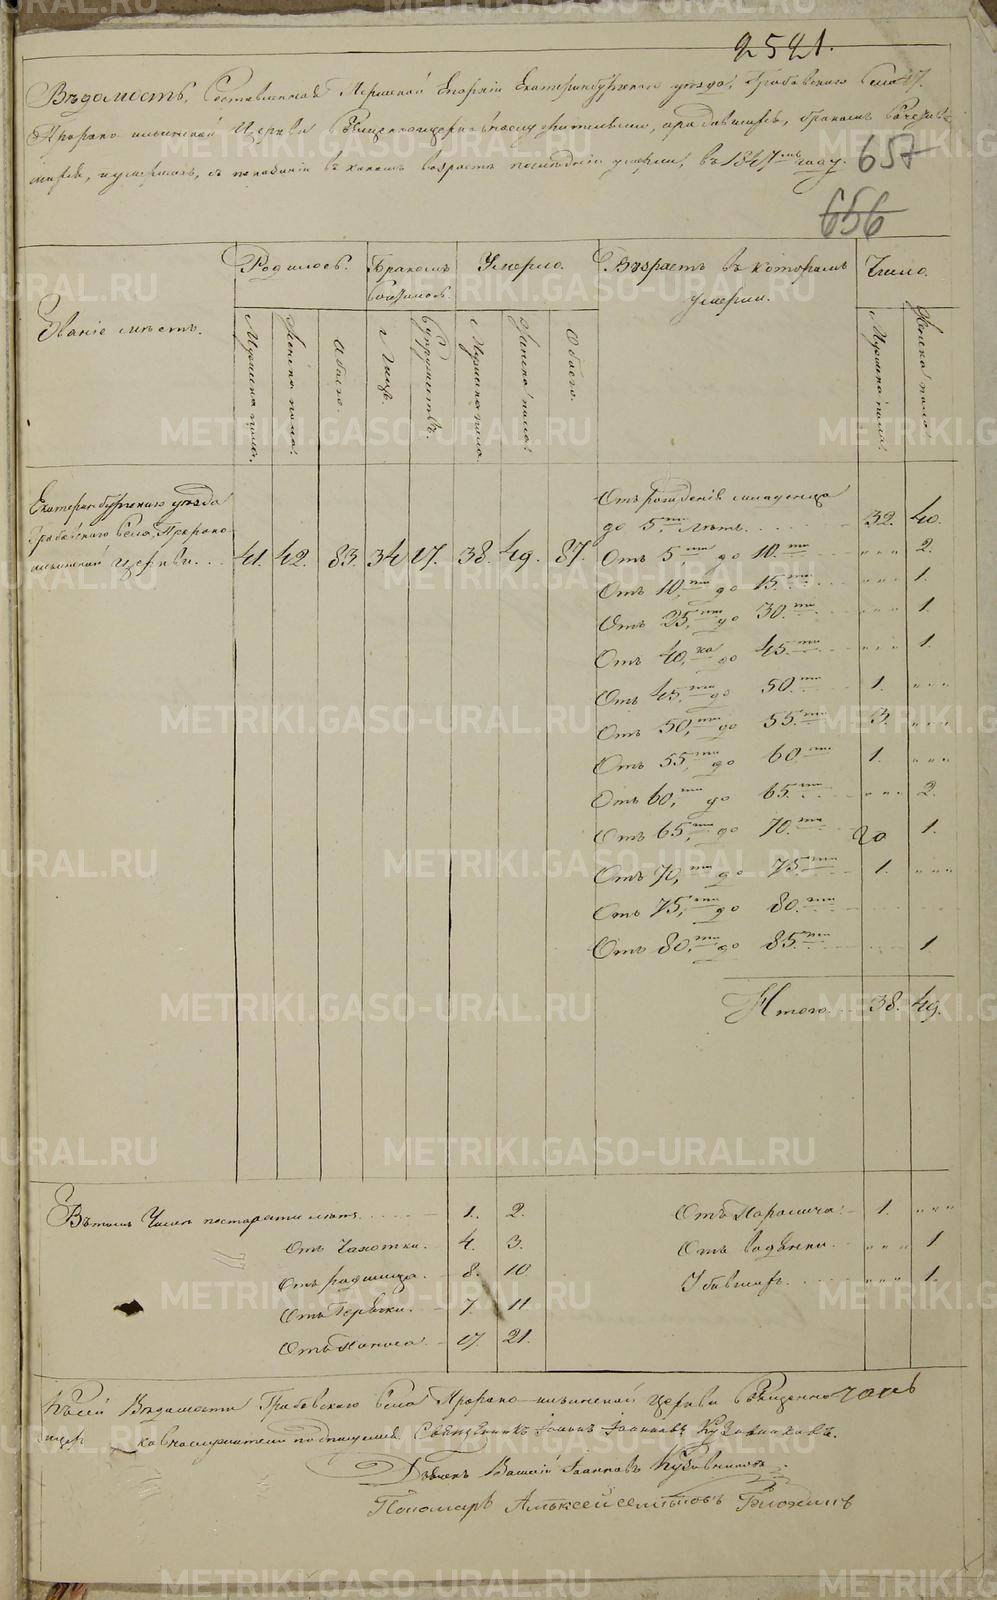 2521.
Вѣдомость, Составленная Пермской Епархіи Екатеринбургскаго уѣзда, Грабовскаго Села 47.
Пророко ильинской Церкви Священноцерковнослужителями, о родившихся, бракомъ Сочетав-
шихся, и умершихъ, съ показаніемъ въ какомъ возрастѣ последніи умерли, въ 1847мъ году.
657
656
Званіе мѣстъ.
Родилось.
Бракомъ
Сочеталось.
Умерло.
Возрастъ въ которомъ
умерли.
Число.
Мужеска пола.
Женска пола.
Обоего.
Лицъ.
Супружествъ.
Мужеска пола.
Женска пола.
Обоего.
Мужеска пола.
Женска пола.
Екатеринбургскаго уѣзда
Грабовскаго Села, Пророко-
ильинской Церкви...
41. 42. 83. 34 17. 38. 49. 87.
Отъ рожденія младенца
до 5ти лѣтъ. 32. 40.
Отъ 5,ти до 10.ти „ „ „ 2.
Отъ 10,ти до 15.ти „ „ „ 1.
Отъ 25,ти до 30.ти „ „ „ 1.
Отъ 40,ка до 45.ти „ „ „ 1.
Отъ 45,ти до 50.ти 1. „ „ „
Отъ 50,ти до 55.ти 3. „ „ „
Отъ 55,ти до 60.ти 1. „ „ „
Отъ 60,ти до 65.ти „ „ „ 2.
Отъ 65,ти до 70.ти 1.
Отъ 70,ти до 75.ти 1. „ „ „
Отъ 75,ти до 80.ти
Отъ 80,ти до 85.ти 1.
Итого. 38. 49.
Въ томъ Числѣ по старости лѣтъ 1. 2.
Отъ Чахотки. 4. 3.
Отъ родимца. 8. 10
Отъ Горячки. 7. 11
Отъ Поноса. 17. 21.
Отъ Паралича. 1. „ „ „
Отъ водянки. „ „ „ 1
Убившихъ. „ „ „ 1.
Къ сей Вѣдомости Грабовскаго Села Пророко-ильинской Церкви Священно
церковнослужители подписуемся Священникъ Іоаннъ
Дьячекъ Василій Іоанновъ
Пономарь Алексей